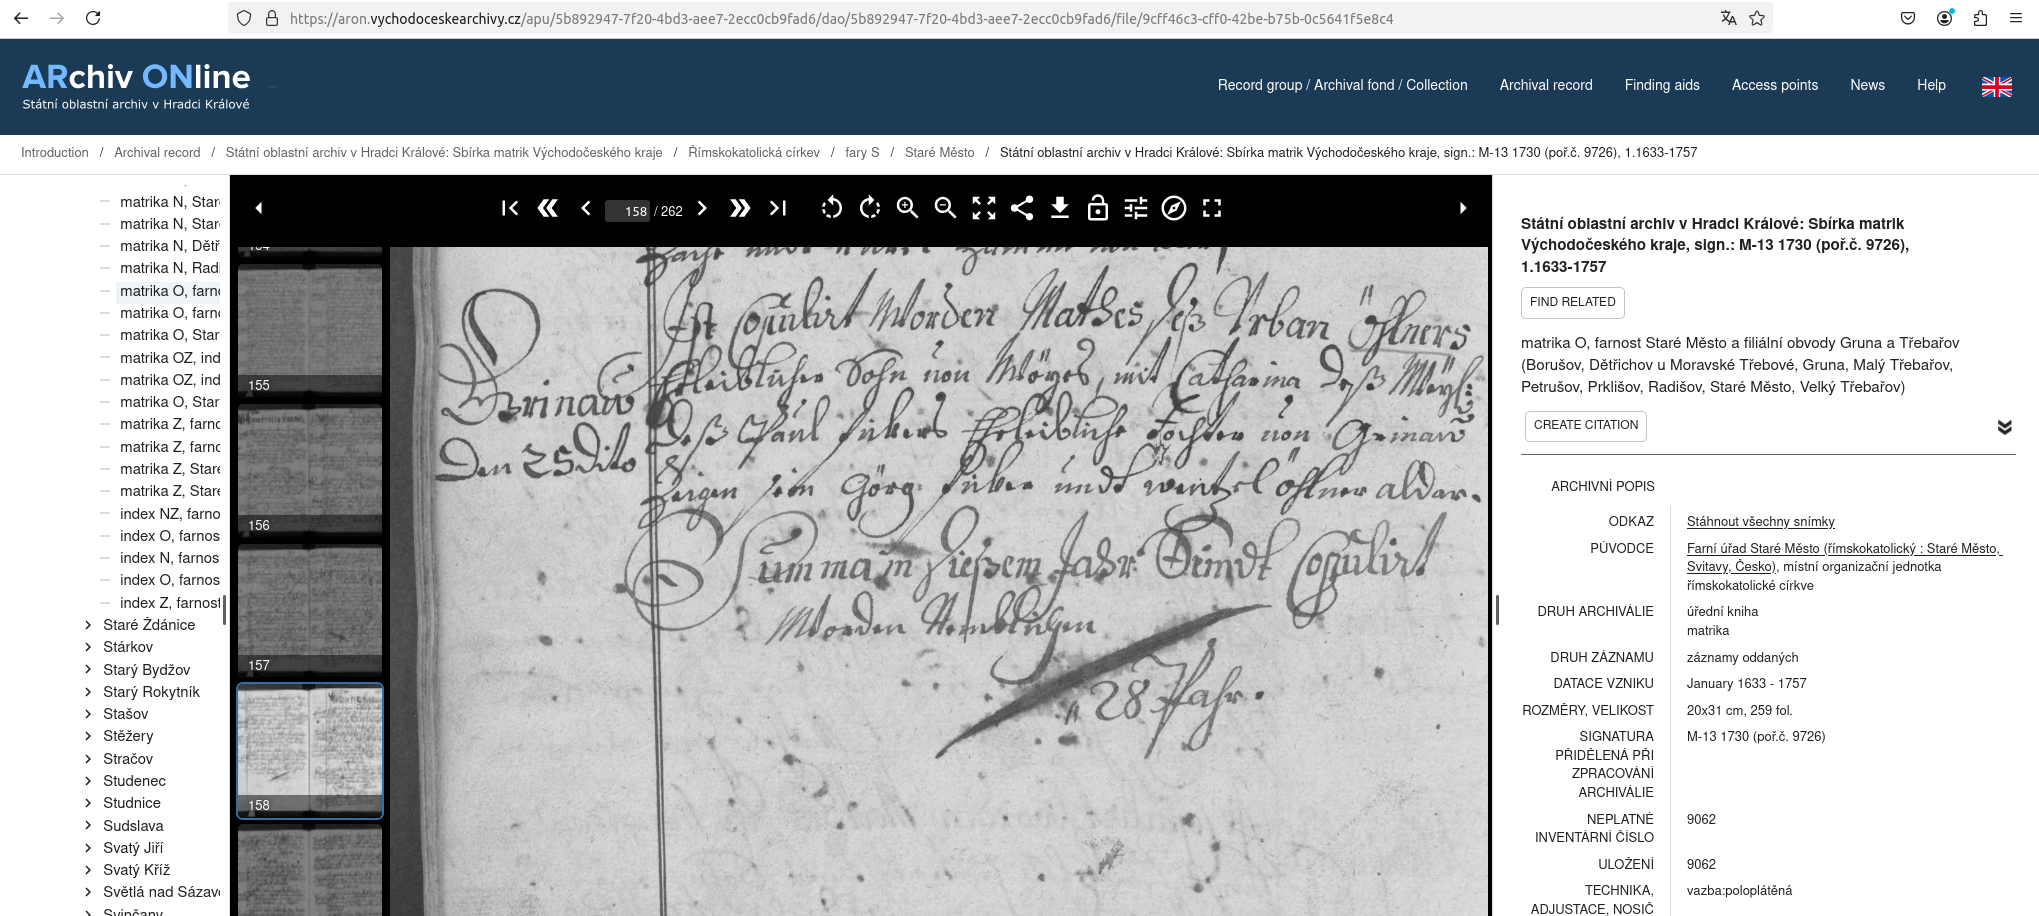 https://aron.vychodoceskearchivy.cz/apu/5b892947-7f20-4bd3-aee7-2ecc0cb9fad6/dao/5b892947-7f20-4bd3-aee7-2ecc0cb9fad6/file/9cff46c3-cff0-42be-b75b-0c5641f5e8c4
ARchiv ONline
Státní oblastní archiv v Hradci Králové
Record group / Archival fond / Collection
Archival record
Finding aids
Access points
News
Help
Introduction / Archival record / Státní oblastní archiv v Hradci Králové: Sbírka matrik Východočeského kraje / Římskokatolická církev / fary S / Staré Město / Státní oblastní archiv v Hradci Králové: Sbírka matrik Východočeského kraje, sign.: M-13 1730 (poř.č. 9726), 1.1633-1757
matrika N, Star
matrika N, Star
matrika N, Dětř
matrika N, Radi
matrika O, farno
matrika O, farno
matrika O, Star
matrika OZ, ind
matrika OZ, ind
matrika O, Star
matrika Z, farno
matrika Z, farno
matrika Z, Staré
matrika Z, Staré
index NZ, farno
index O, farnos
index N, farnos
index O, farnos
index Z, farnost
Staré Ždánice
Stárkov
Starý Bydžov
Starý Rokytník
Stašov
Stěžery
Stračov
Studenec
Studnice
Sudslava
Svatý Jiří
Svatý Kříž
Světlá nad Sázavo
Svinčany
158 / 262
155
156
157
158
Ist Copulirt Worden Mathes deß Urban Öhlners
Eheleiblicher Sohn von Möyes, mit Catharina Deß
Grinaw
Deß Paul Eheleibliche Tochter von Grinaw
Den 25 Dito
Zeigen sein Görg undt wentzel öhlner aldar.
Summa in dießem Jahr Seindt Copulirt
Worden Nemblichen
28 Pahr.
Státní oblastní archiv v Hradci Králové: Sbírka matrik
Východočeského kraje, sign.: M-13 1730 (poř.č. 9726),
1.1633-1757
FIND RELATED
matrika O, farnost Staré Město a filiální obvody Gruna a Třebařov
(Borušov, Dětřichov u Moravské Třebové, Gruna, Malý Třebařov,
Petrušov, Prklišov, Radišov, Staré Město, Velký Třebařov)
CREATE CITATION
ARCHIVNÍ POPIS
ODKAZ
Stáhnout všechny snímky
PŮVODCE
Farní úřad Staré Město (římskokatolický : Staré Město,
Svitavy, Česko), místní organizační jednotka
římskokatolické církve
DRUH ARCHIVÁLIE
úřední kniha
matrika
DRUH ZÁZNAMU
záznamy oddaných
DATACE VZNIKU
January 1633 - 1757
ROZMĚRY, VELIKOST
20x31 cm, 259 fol.
SIGNATURA
PŘIDĚLENÁ PŘI
ZPRACOVÁNÍ
ARCHIVÁLIE
M-13 1730 (poř.č. 9726)
NEPLATNÉ
INVENTÁRNÍ ČÍSLO
9062
ULOŽENÍ
9062
TECHNIKA,
ADJUSTACE, NOSIČ
vazba:poloplátěná